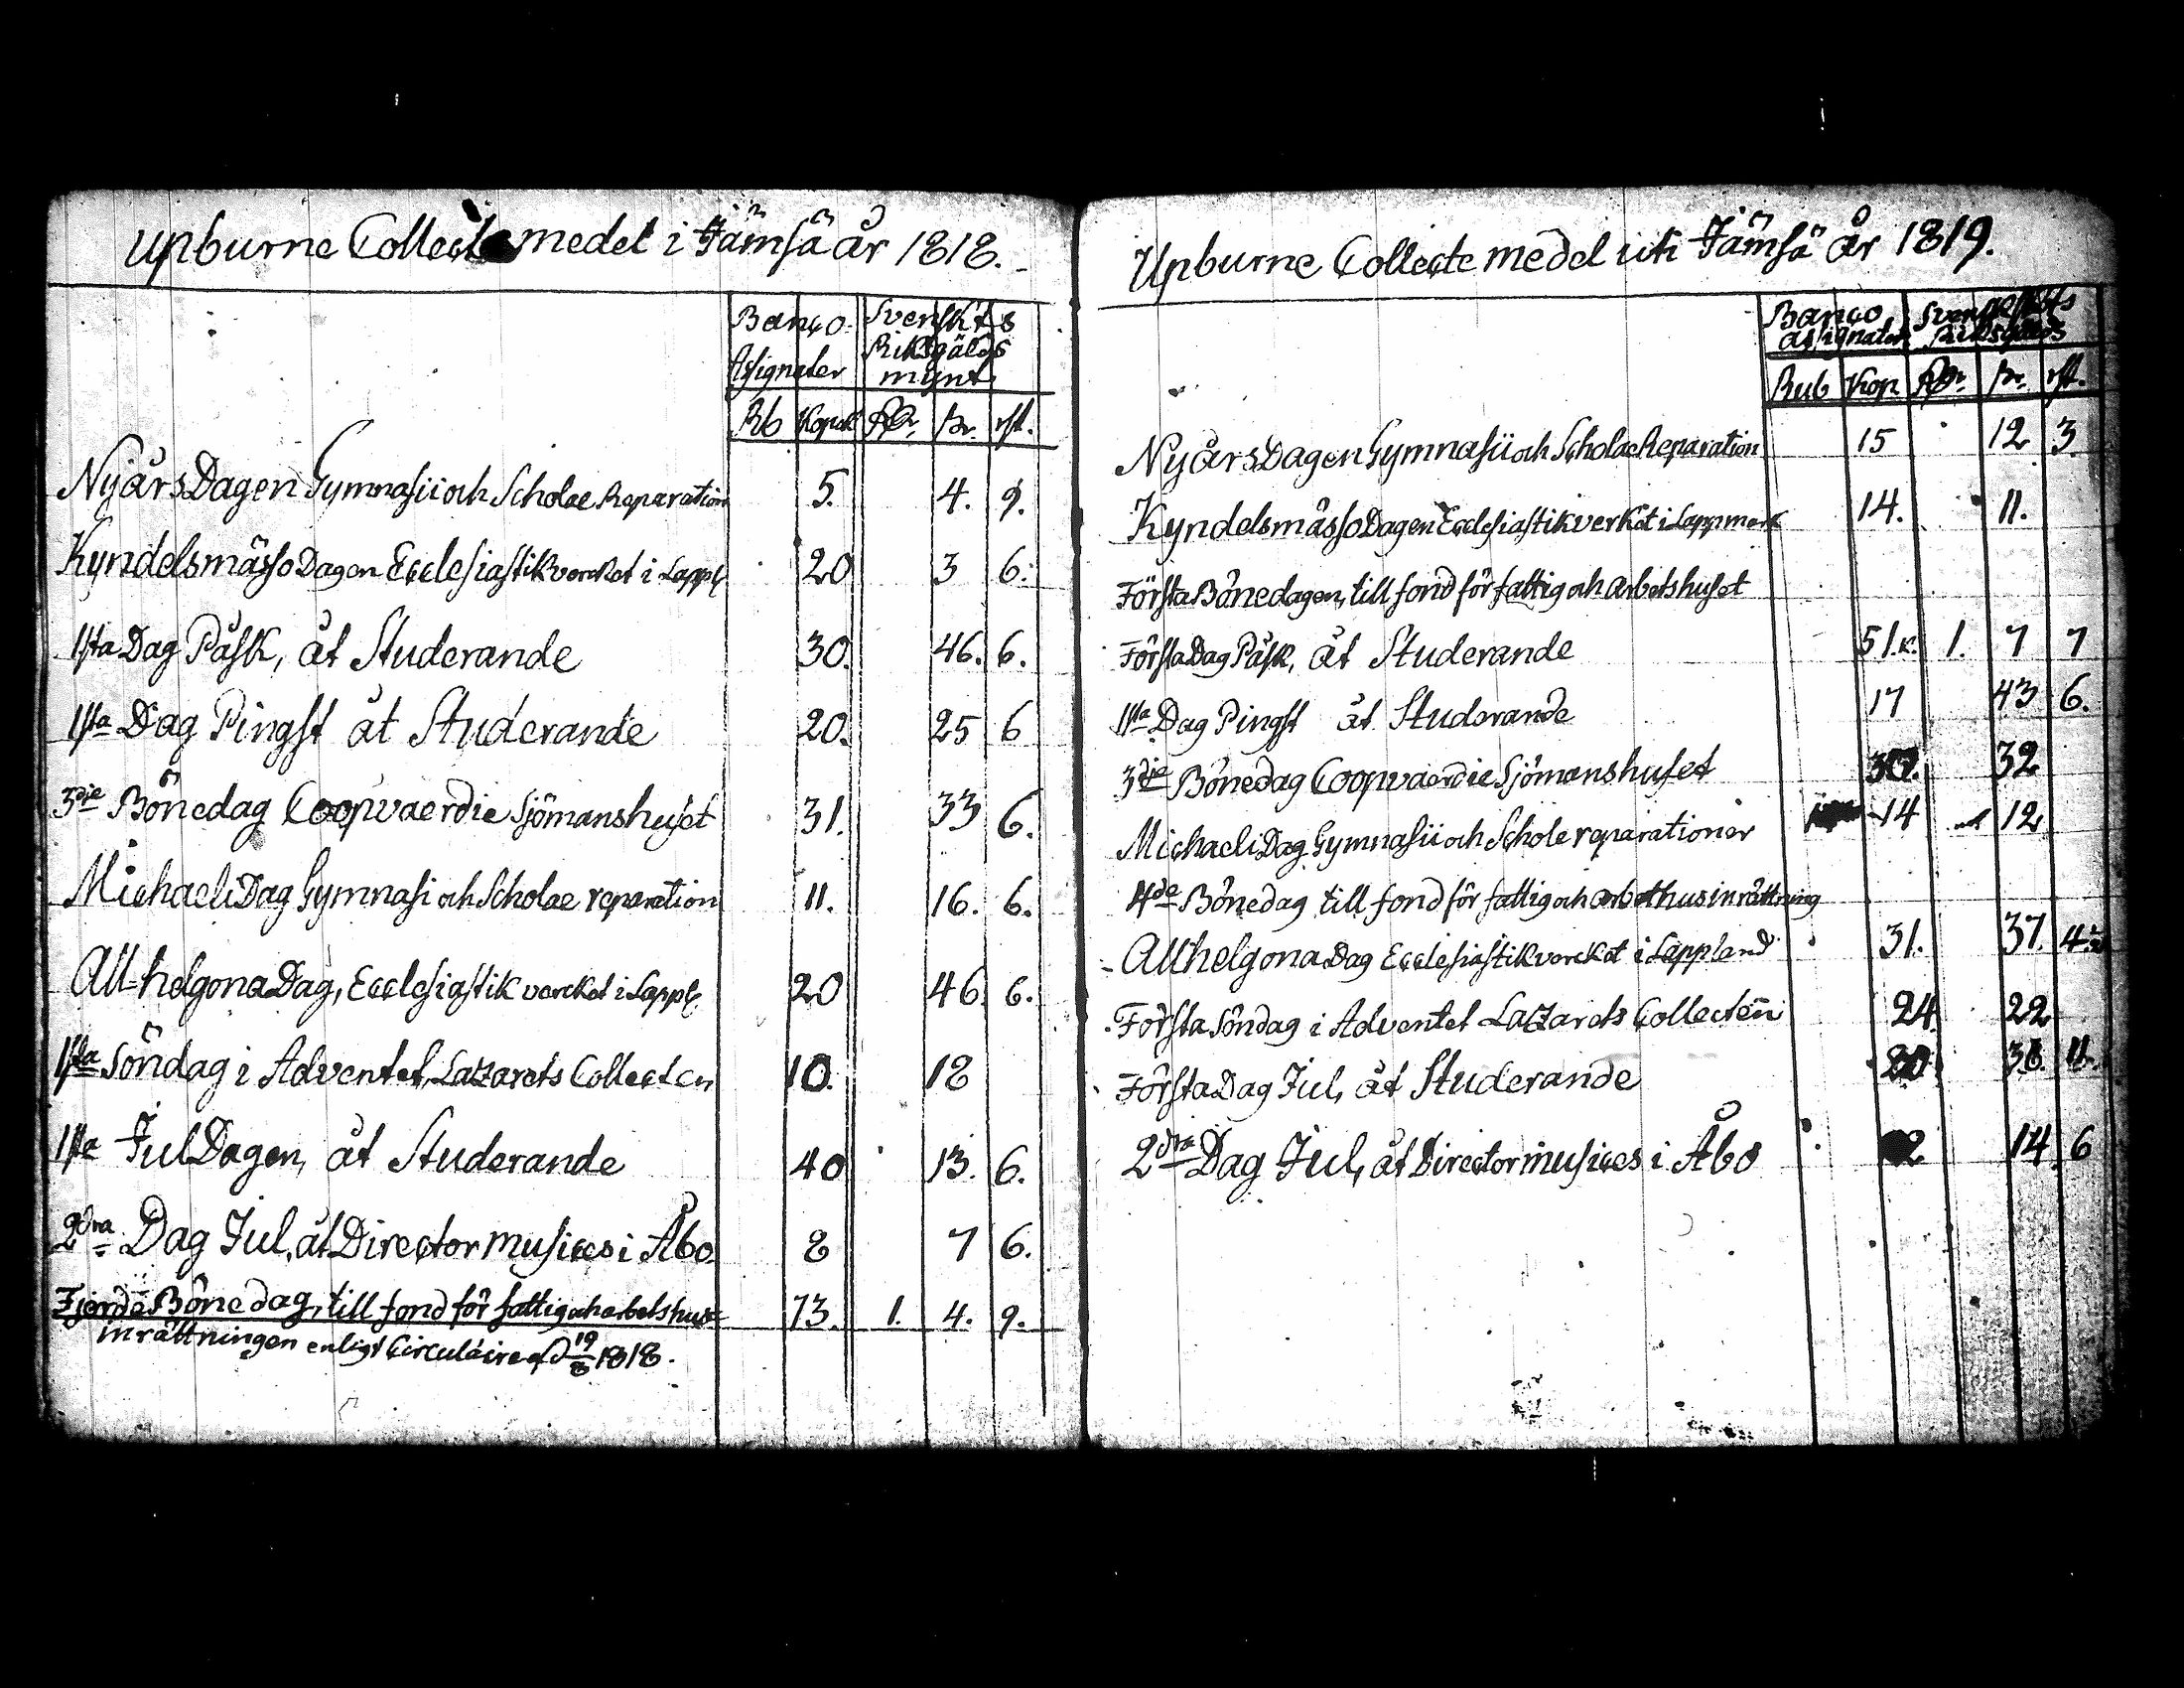 Upburne Collecte medel i Jämsä år 1818.
Banco Assignater Svenskt Riksgälds mynt
Rb Kopek Rdr. ſz. rſt.
Nyårs Dagen Gymnasii och Scholae Reparation 5. 4. 9.
Kyndelsmässo Dagen Ecclesiastikverket i Lappl. 20 3 6.
1sta Dag Påsk, åt Studerande 30. 46. 6.
1sta Dag Pingst åt Studerande 20. 25 6
3die Bönedag Coopvaerdie Sjömanshuset 31. 33 6.
Michaeli Dag Gymnasi och Scholae reparation 11. 16. 6.
All-helgona Dag, Ecclesiastik verket i Lappl. 20 46. 6.
1sta Söndag i Adventet, Lazarets Collecten 10. 18
1sta Jul Dagen, åt Studerande 40 13. 6.
2dra Dag Jul, åt Director musices i Åbo. 8 7 6.
Fjerde Bönedag, till fond för fattig och arbetshus 73. 1. 4. 9.
inrättningen enligt Circulaire af d 19/8 1818.
Upburne Collecte medel uti Jämsä år 1819.
Banco assignater Svenskt Riksgälds
Rub Kop. Rdr. ſz. rſt.
Nyårs Dagen Gymnasii och Scholae Reparation 15 12 3.
Kyndelsmässo Dagen Ecclesiastikverket i Lappmark 14. 11.
Första Bönedagen, till fond för fattig och arbetshuset
Första Dag Påsk, åt Studerande 51.k. 1. 7 7
1sta Dag Pingst åt Studerande 17 43 6.
3die Bönedag Coopvaerdie Sjömanshuset 32
Michaeli Dag Gymnasii och Schole reparationer 14 12
4de Bönedag till fond för fattig och arbethusinrättning
Allhelgona Dag Ecclesiastikverket i Lappland 31. 37. 4.
Första Söndag i Adventet Lazarets Collecten 24. 22
Första Dag Jul, åt Studerande 11.
2dra Dag Jul, åt Director musices i Åbo 2 14. 6